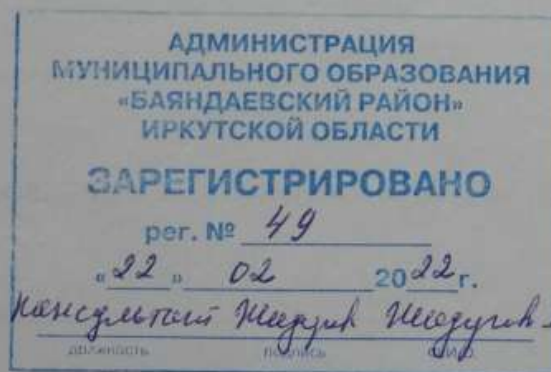 АДМИНИСТРАЦИЯ
МУНИЦИПАЛЬНОГО ОБРАЗОВАНИЯ
«БАЯНДАЕВСКИЙ РАЙОН»
ИРКУТСКОЙ ОБЛАСТИ
ЗАРЕГИСТРИРОВАНО
рег. № 49
«22» 02 2022г.
консультант
должность подпись Ф.И.О.